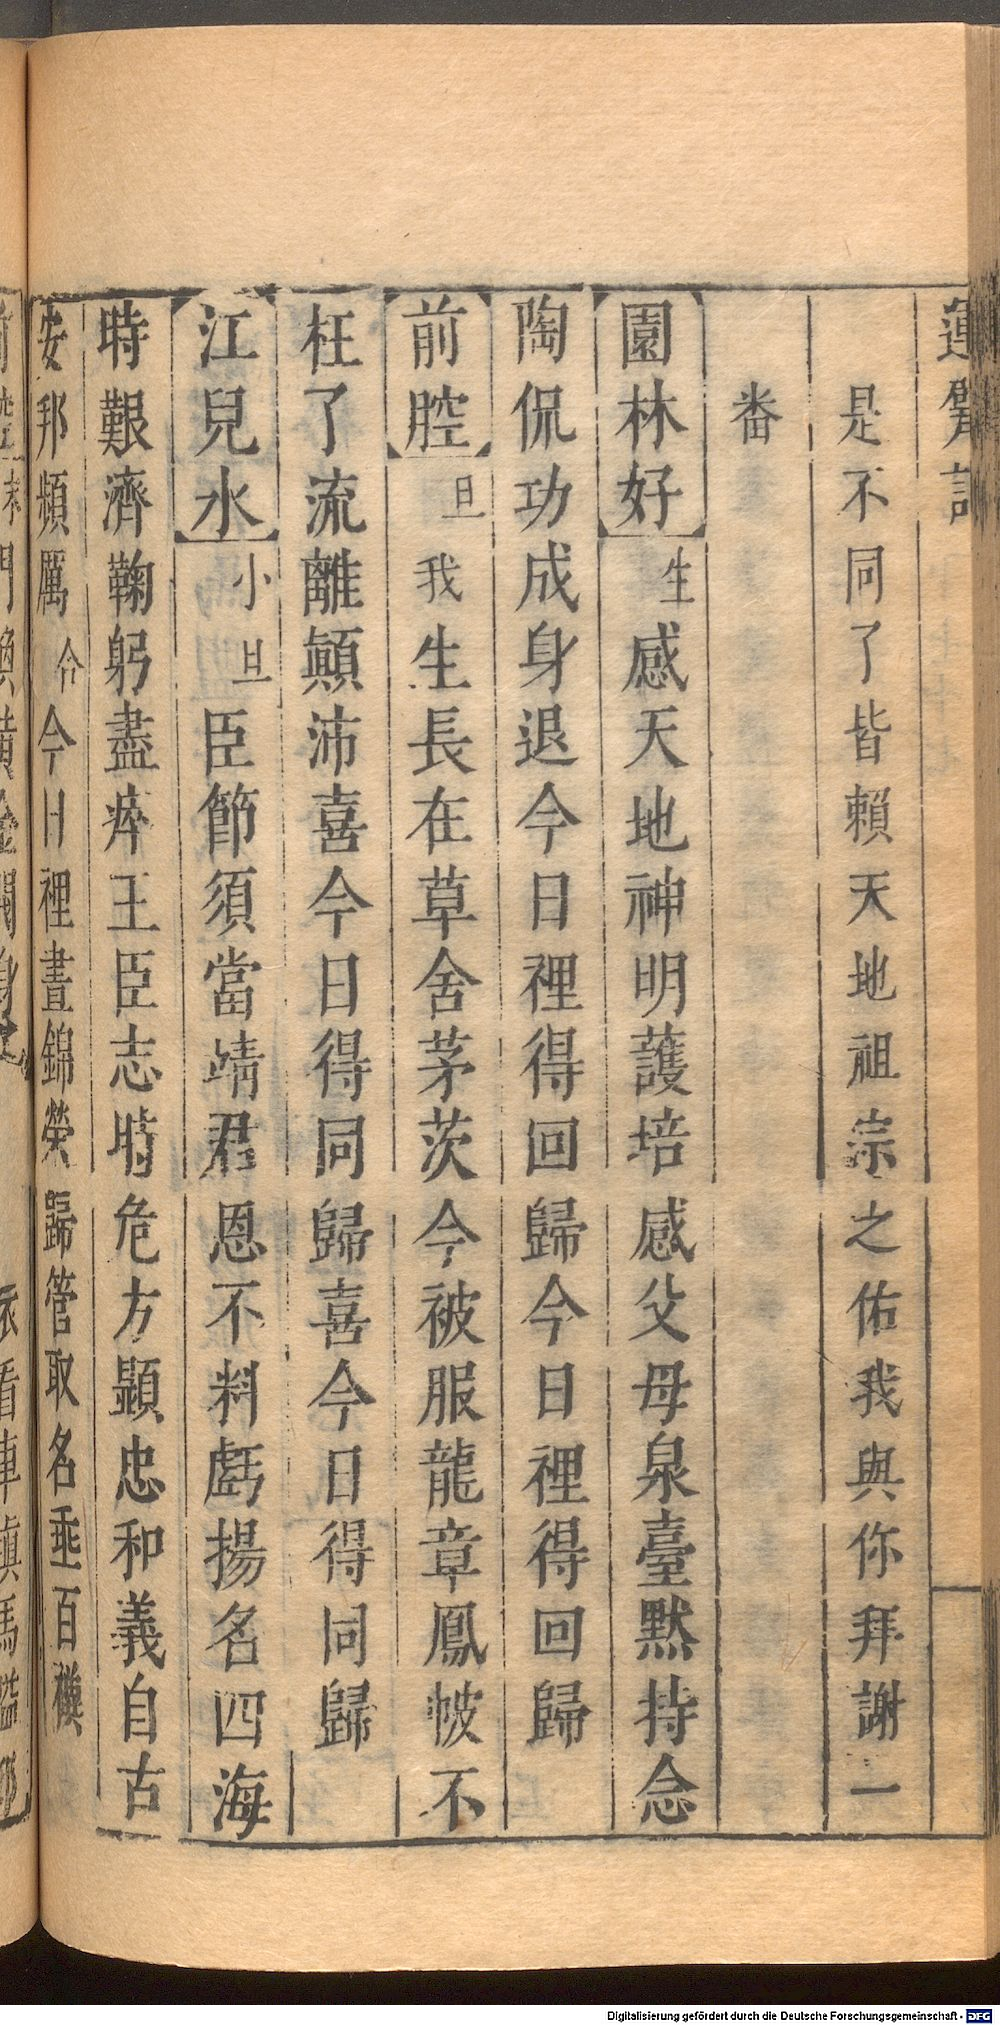 運甓記
是不同了皆賴天地祖宗之佑我與你拜謝一
畨
園林好 生 感天地神明護培感父母泉臺黙持念
陶侃功成身退今日裡得回歸今日裡得回歸
前腔 旦 我生長在草舍茅茨今被服龍章鳳帔不
枉了流離顚沛喜今日得同歸喜今日得同歸
江兒水 小旦 臣節須當靖君恩不料虧揚名四海
時艱濟鞠躬盡瘁王臣志時危方顯忠和義自古
安邦頻厲 合 今日裡晝錦榮歸管取名垂百禩
Digitalisierung gefördert durch die Deutsche Forschungsgemeinschaft - DFG